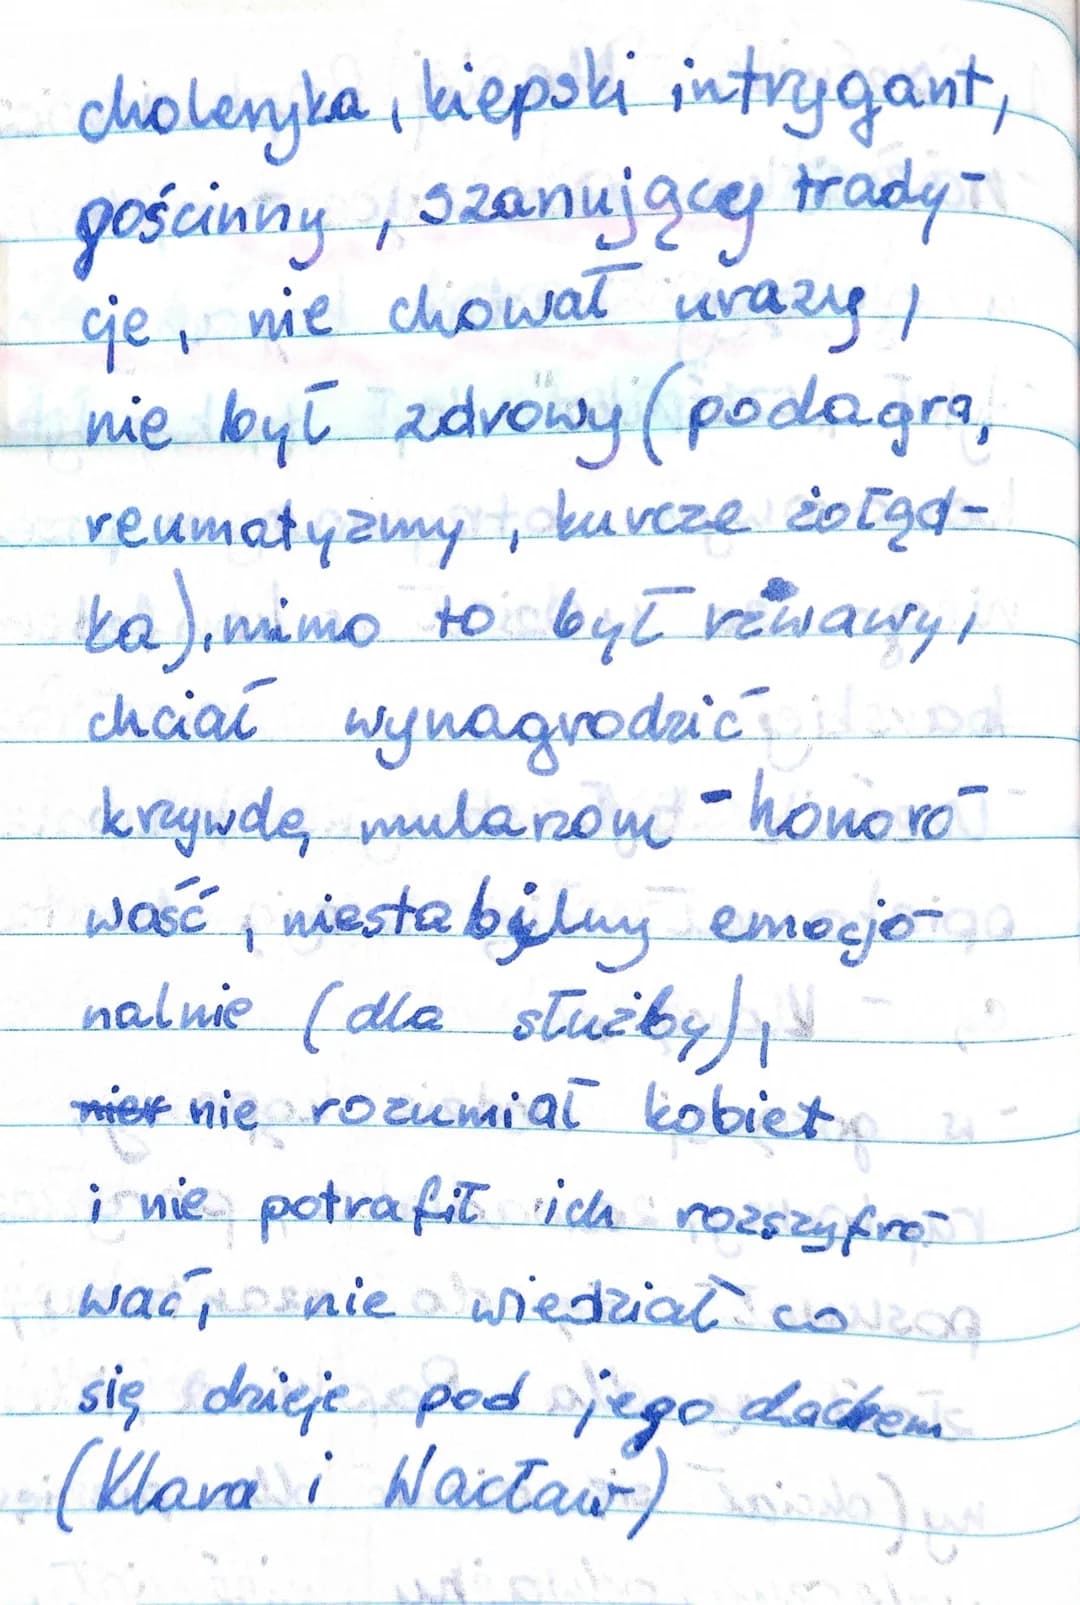 choleryka, kiepski intrygant,
gościnny, szanujący trady-
cje, nie chował urazy,
nie był zdrowy (podagra,
reumatyzmy, kurcze żołąd-
ka), mimo to był rźwawy,
chciał wynagrodzić
krzywdę mularzom - honoro-
wość, niestabilny emocjo-
nalnie (dla służby),
nie rozumiał kobiet
i nie potrafił ich rozszyfro-
wać, nie wiedział co
się dzieje pod jego dachem
(Klara i Wacław)